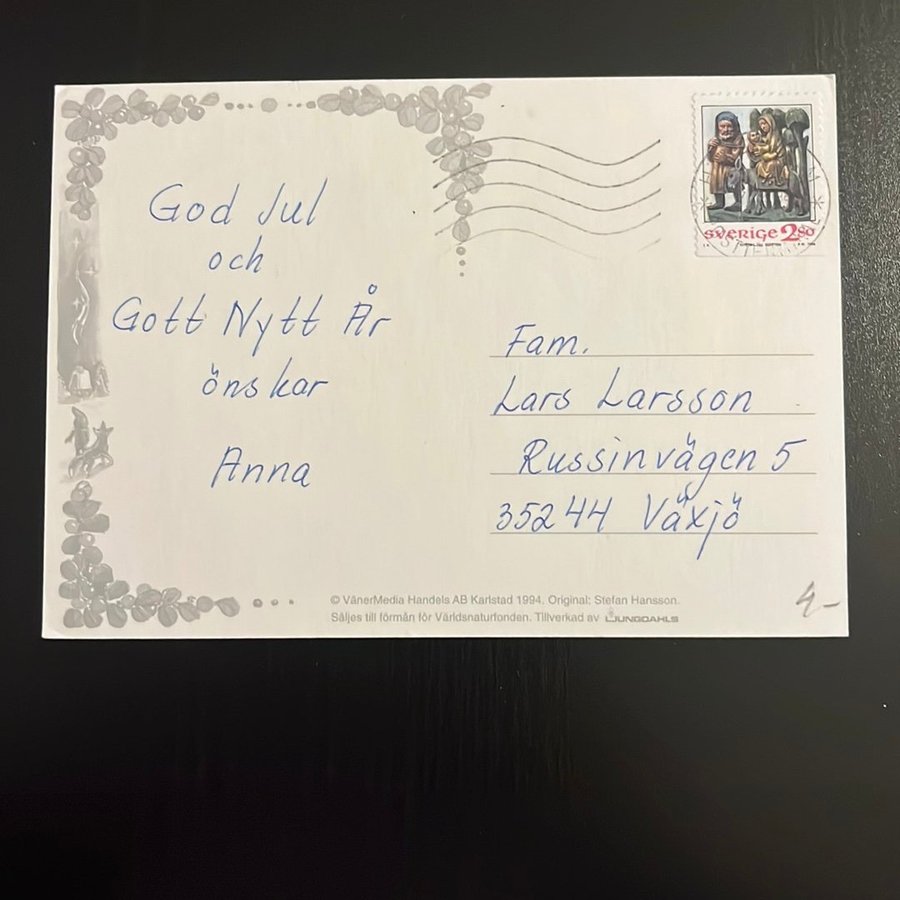 God Jul
och
Gott Nytt År
önskar
Anna
SVERIGE 280
Fam.
Lars Larsson
Russinvägen 5
35244 Växjö
© VänerMedia Handels AB Karlstad 1994. Original: Stefan Hansson.
Säljes till förmån för Världsnaturfonden. Tillverkad av LJUNGDAHLS
4-